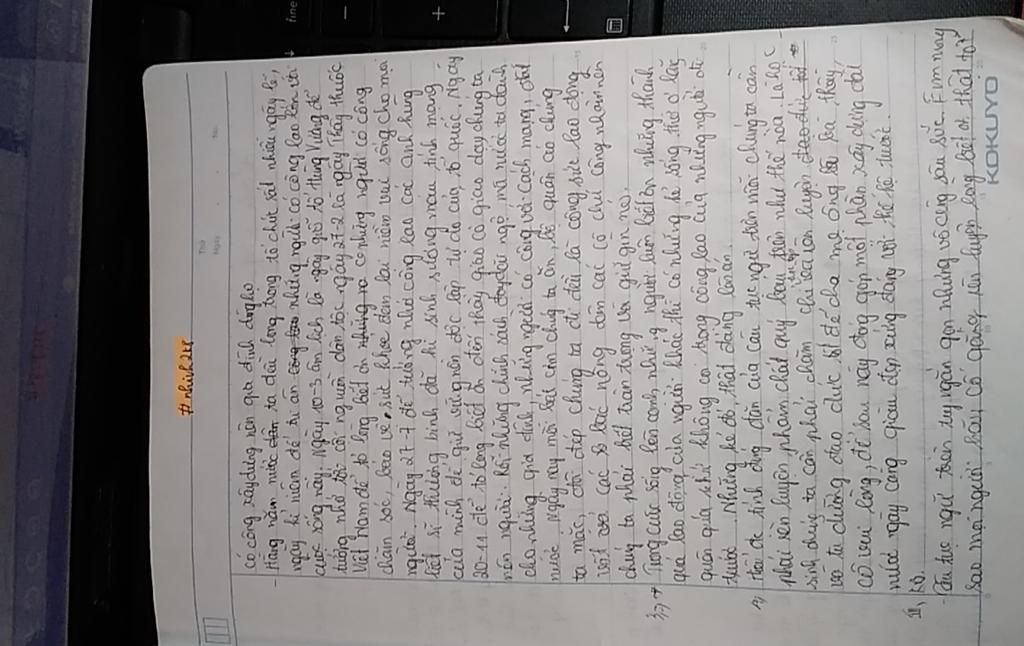 # nhích2k8
Thứ
Ngày
No.
có công xây dựng nên gia đình dòng họ
- Hằng năm nước ta đều long trọng tổ chức rất nhiều ngày lễ,
ngày kỉ niệm để tri ân những người có công lao lớn với
cuộc sống này. Ngày 10-3 âm lịch là ngày giỗ tổ Hùng Vương để
tưởng nhớ tới cội nguồn dân tộc, ngày 27-2 là ngày Thầy thuốc
Việt Nam để tỏ lòng biết ơn những người có công
chăm sóc, bảo vệ sức khỏe đem lại niềm vui sống cho mọi
người. Ngày 27-7 để tưởng nhớ công lao các anh hùng
liệt sĩ thương binh đã hi sinh xương máu tính mạng
của mình để giữ vững nền độc lập tự do của tổ quốc. Ngày
20-11 để tỏ lòng biết ơn đến thầy giáo cô giáo dạy chúng ta
nên người. Rồi những chính sách đãi ngộ mà nước ta dành
cho những gia đình những người có công với cách mạng, đất
nước. Ngày nay mỗi bát cơm chúng ta ăn, bộ quần áo chúng
ta mặc, đôi dép chúng ta đi đều là công sức lao động
vất vả các bác nông dân các cô chú công nhân nên
chúng ta phải biết trân trọng và giữ gìn nó.
3, → Trong cuộc sống bên cạnh những người luôn biết ơn những thành
quả lao động của người khác thì có những kẻ sống thờ ơ lãng
quên quá khứ không coi trọng công lao của những người đi
trước. Những kẻ đó thật đáng lên án.
4, Hiểu được tính đúng đắn của câu tục ngữ trên mỗi chúng ta cần
phải rèn luyện phẩm chất quý báu trên như thế nào? Là học
sinh chúng ta cần phải chăm chỉ học tập rèn luyện
và tu dưỡng đạo đức tốt để cha mẹ, ông bà, thầy,
cô vui lòng, để sau này đóng góp một phần xây dựng đất
nước ngày càng giàu đẹp xứng đáng với thế hệ trước.
III, KB.
- Câu tục ngữ trên tuy ngắn gọn nhưng vô cùng sâu sức. Em mong
sao mọi người hãy cố gắng rèn luyện lòng biết ơn thật tốt
KOKUYO
fine